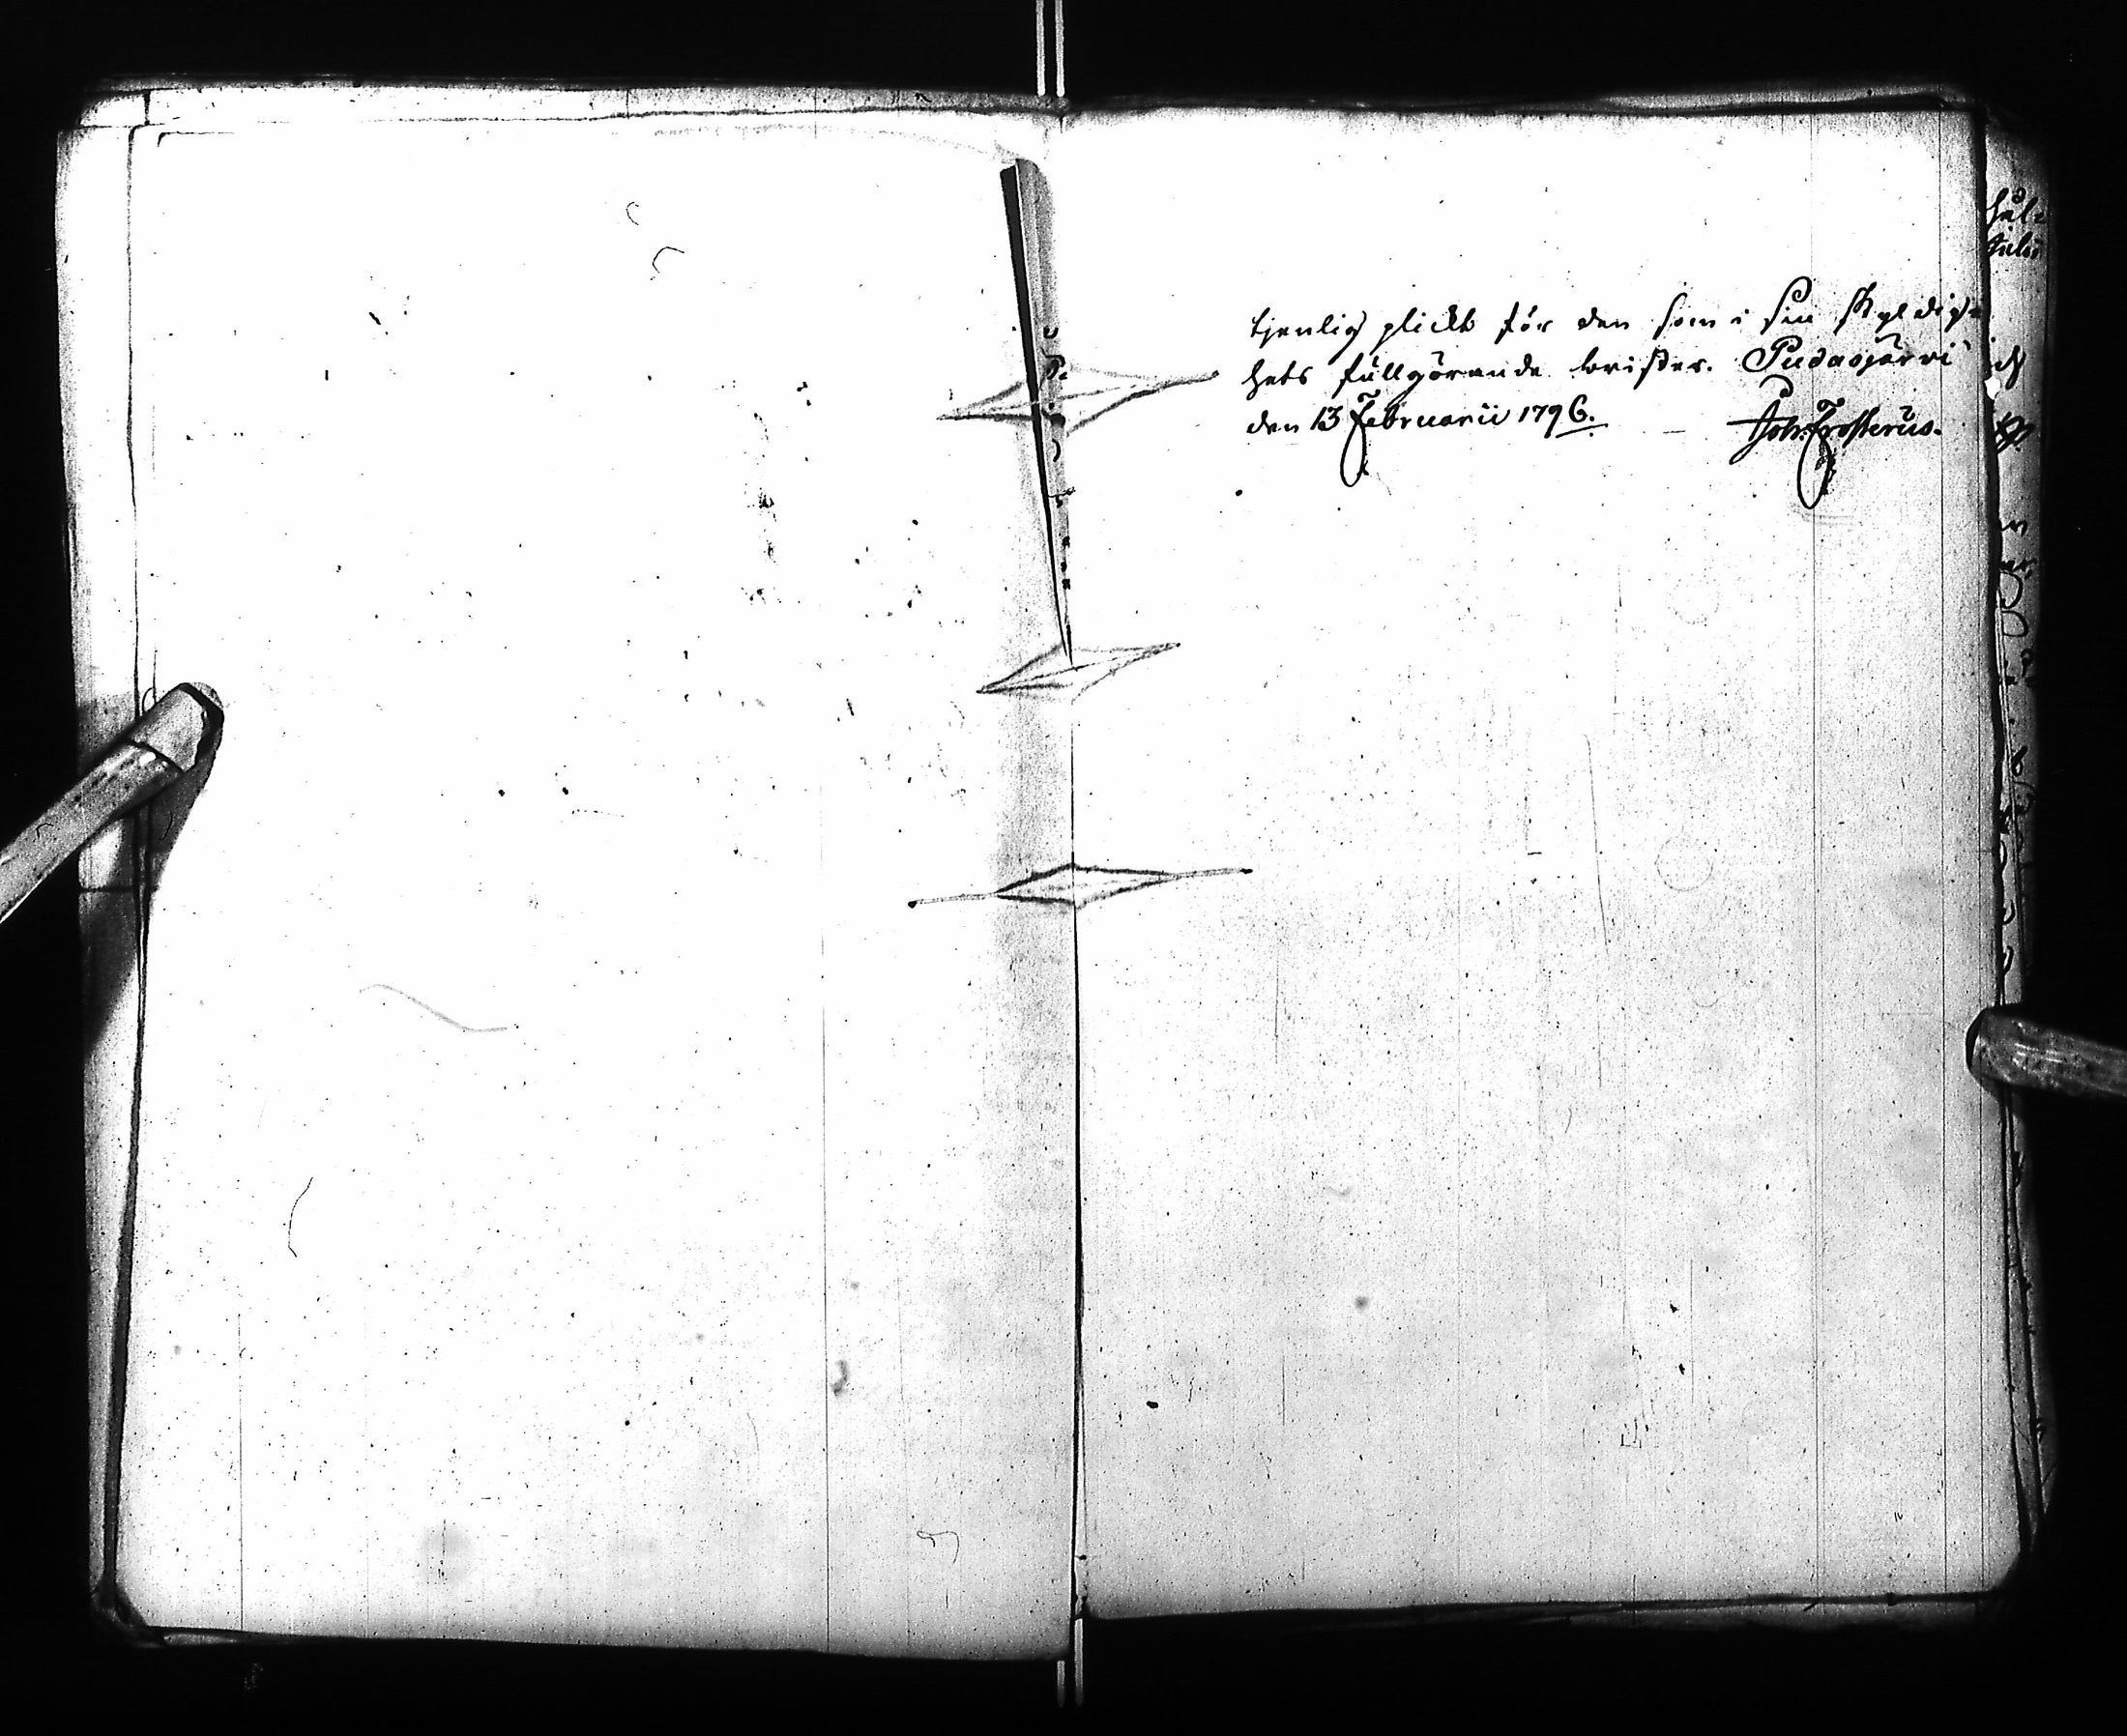 tjenlig plickt för den som i sin skyldig=
hets fullgörande brister. Pudasjärvi
den 13 Februarii 1796. Joh. Frosterus.